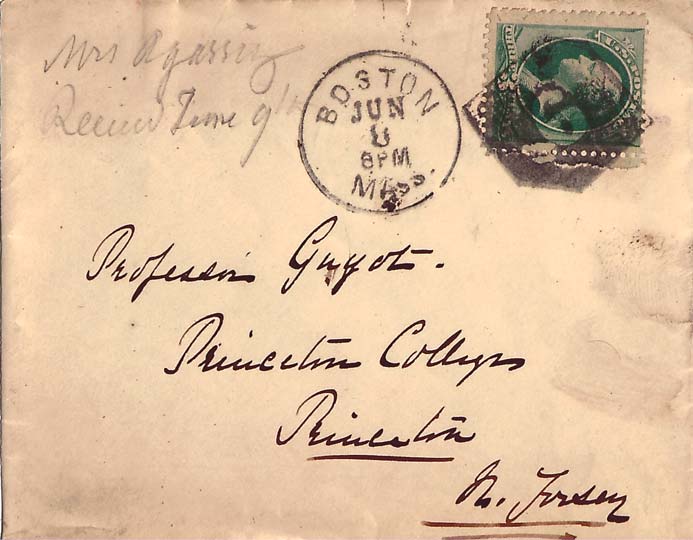 Mrs Agassiz
Received June 9th
BOSTON
JUN
8
8PM
MASS.
Professor Guyot.
Princeton College
Princeton
N. Jersey